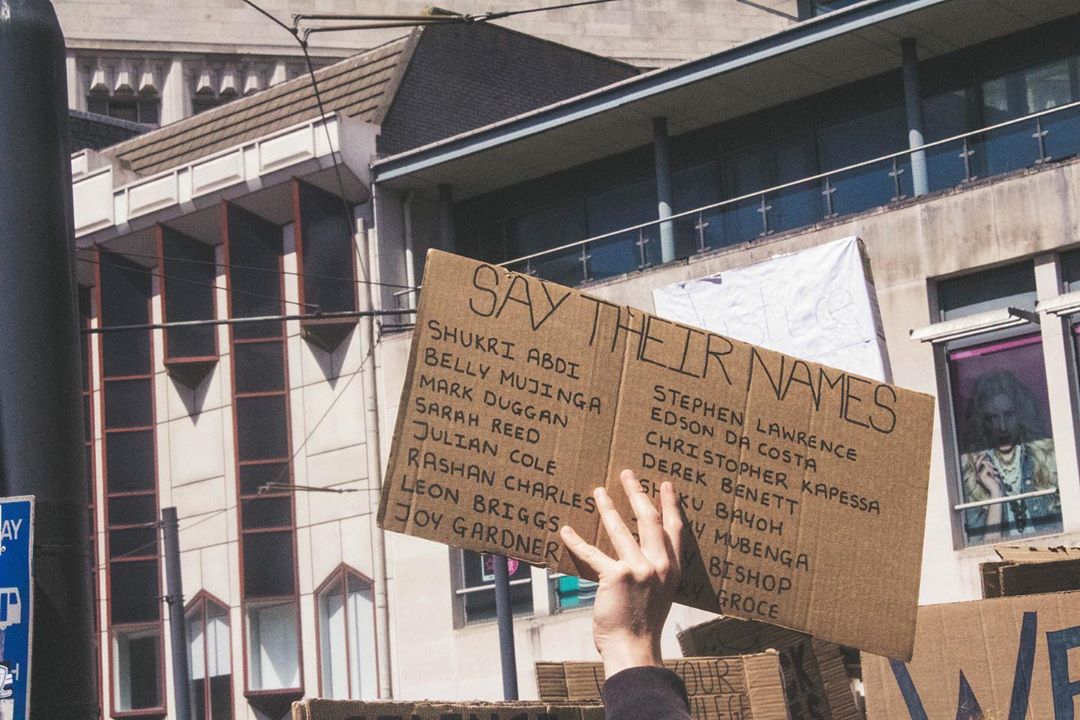 SAY THEIR NAMES
SHUKRI ABDI
BELLY MUJINGA
MARK DUGGAN
SARAH REED
JULIAN COLE
RASHAN CHARLES
LEON BRIGGS
JOY GARDNER
STEPHEN LAWRENCE
EDSON DA COSTA
CHRISTOPHER KAPESSA
DEREK BENETT
BAYOH
MUBENGA
BISHOP
GROCE
Justice
YOUR
WE
AY